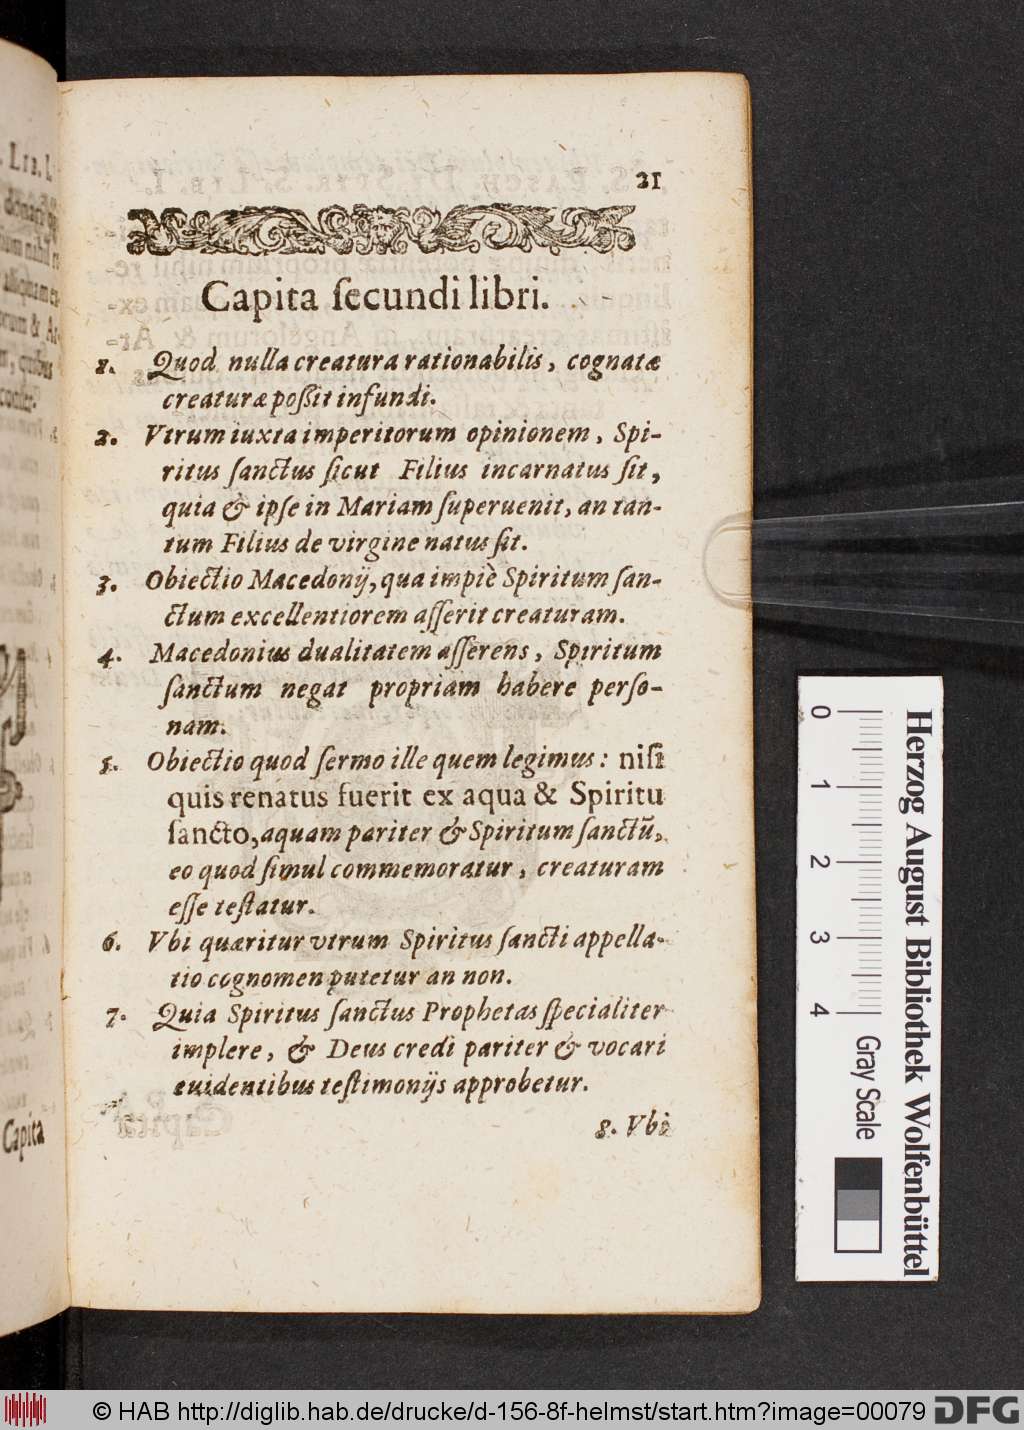 21
Capita ſecundi libri.
1. Quod nulla creatura rationabilis, cognatæ
creaturæ poßit infundi.
2. Vtrum iuxta imperitorum opinionem, Spi-
ritus ſanctus ſicut Filius incarnatus ſit,
quia & ipſe in Mariam ſuperuenit, an tan-
tum Filius de virgine natus ſit.
3. Obiectio Macedonij, qua impiè Spiritum ſan-
ctum excellentiorem aſſerit creaturam.
4. Macedonius dualitatem aſſerens, Spiritum
ſanctum negat propriam habere perſo-
nam.
5. Obiectio quod ſermo ille quem legimus: niſi
quis renatus fuerit ex aqua & Spiritu
ſancto, aquam pariter & Spiritum ſanctũ,
eo quod ſimul commemoratur, creaturam
eſſe teſtatur.
6. Vbi quæritur vtrum Spiritus ſancti appella-
tio cognomen putetur an non.
7. Quia Spiritus ſanctus Prophetas ſpecialiter
implere, & Deus credi pariter & vocari
euidentibus teſtimonijs approbetur.
8. Vbi
LIB. I.
Capita
0 1 2 3 4
Herzog August Bibliothek Wolfenbüttel
Gray Scale
© HAB http://diglib.hab.de/drucke/d-156-8f-helmst/start.htm?image=00079
DFG